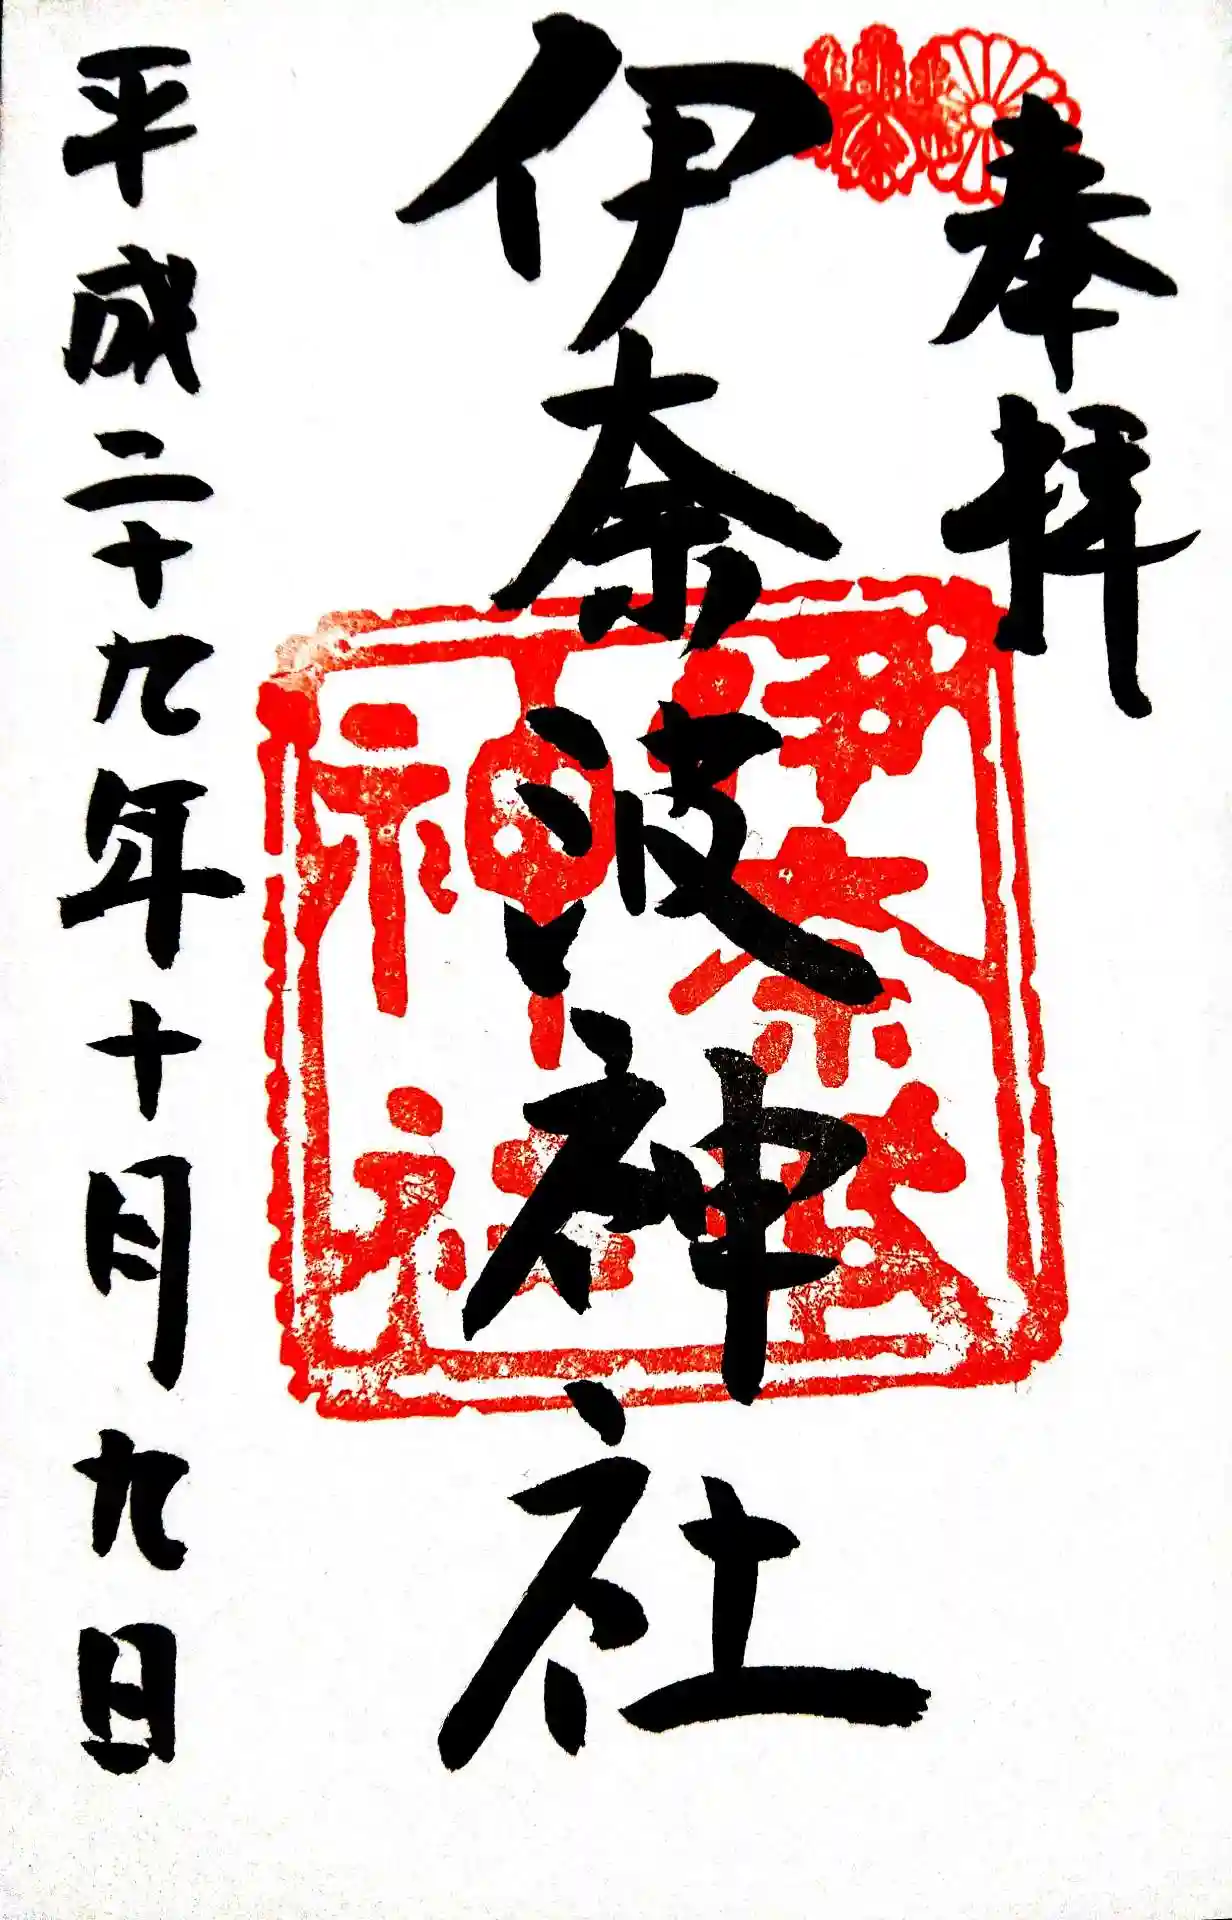 奉拝
伊奈波神社
伊奈波
神社
平成二十九年十月九日